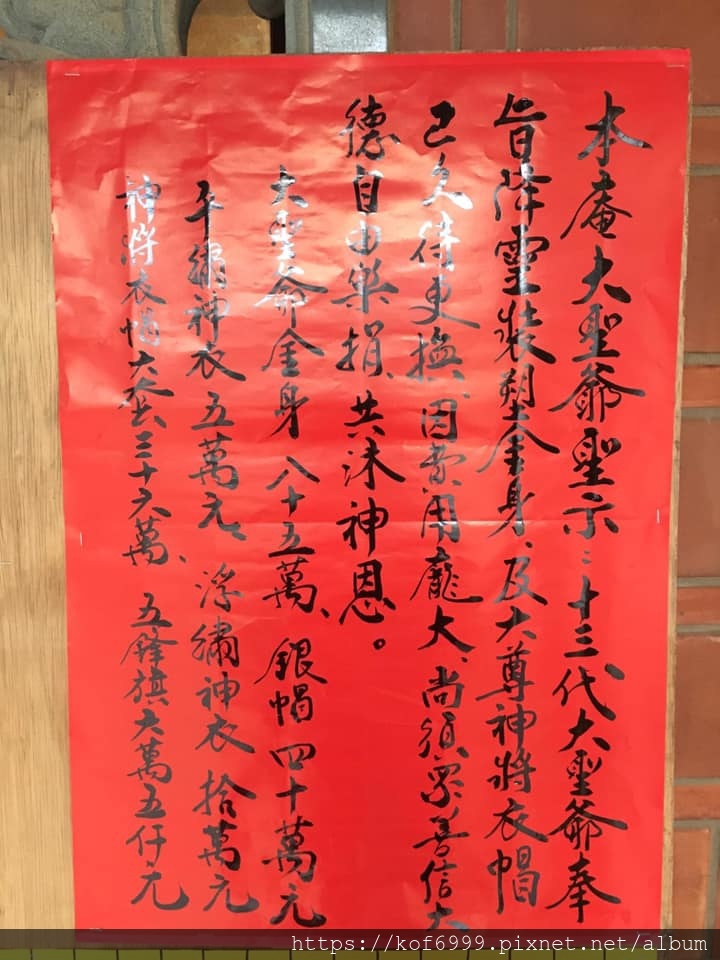 本庵大聖爺聖示：十三代大聖爺奉
旨降靈裝塑金身、及大尊神將衣帽
已久待更換、因費用龐大、尚須眾善信大
德自由樂捐、共沐神恩。
大聖爺金身 八十五萬、銀帽四十萬元
平繡神衣五萬元、浮繡神衣 拾萬元
神將衣帽六套三十六萬、五鋒旗六萬五仟元
https://kof6999.pixnet.net/album